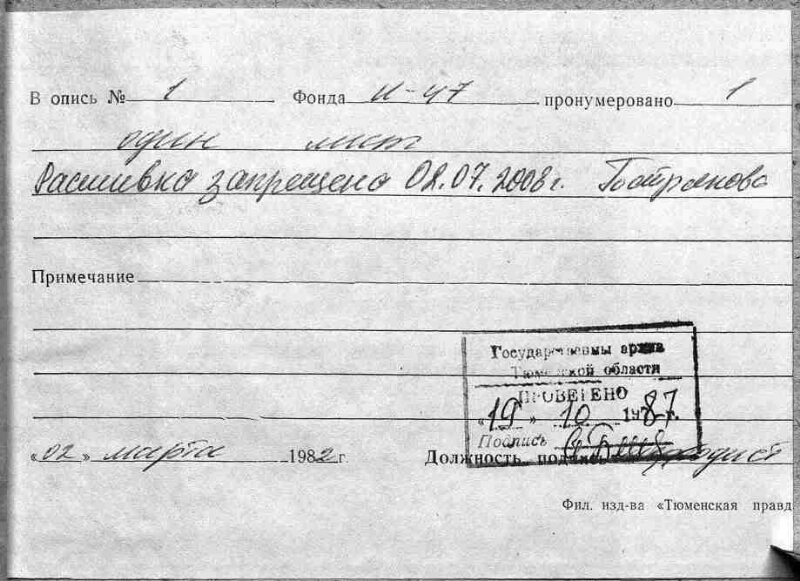 В опись № 1 Фонда И-47 пронумеровано 1
один лист
Расшивка запрещена 02.07.2008г.
Примечание
Государственны архив
Тюменской области
ПРОВЕРЕНО
«19» 10 1987г.
Подпись
«02» марта 1982г. Должность подпись
Фил. изд-ва «Тюменская правд